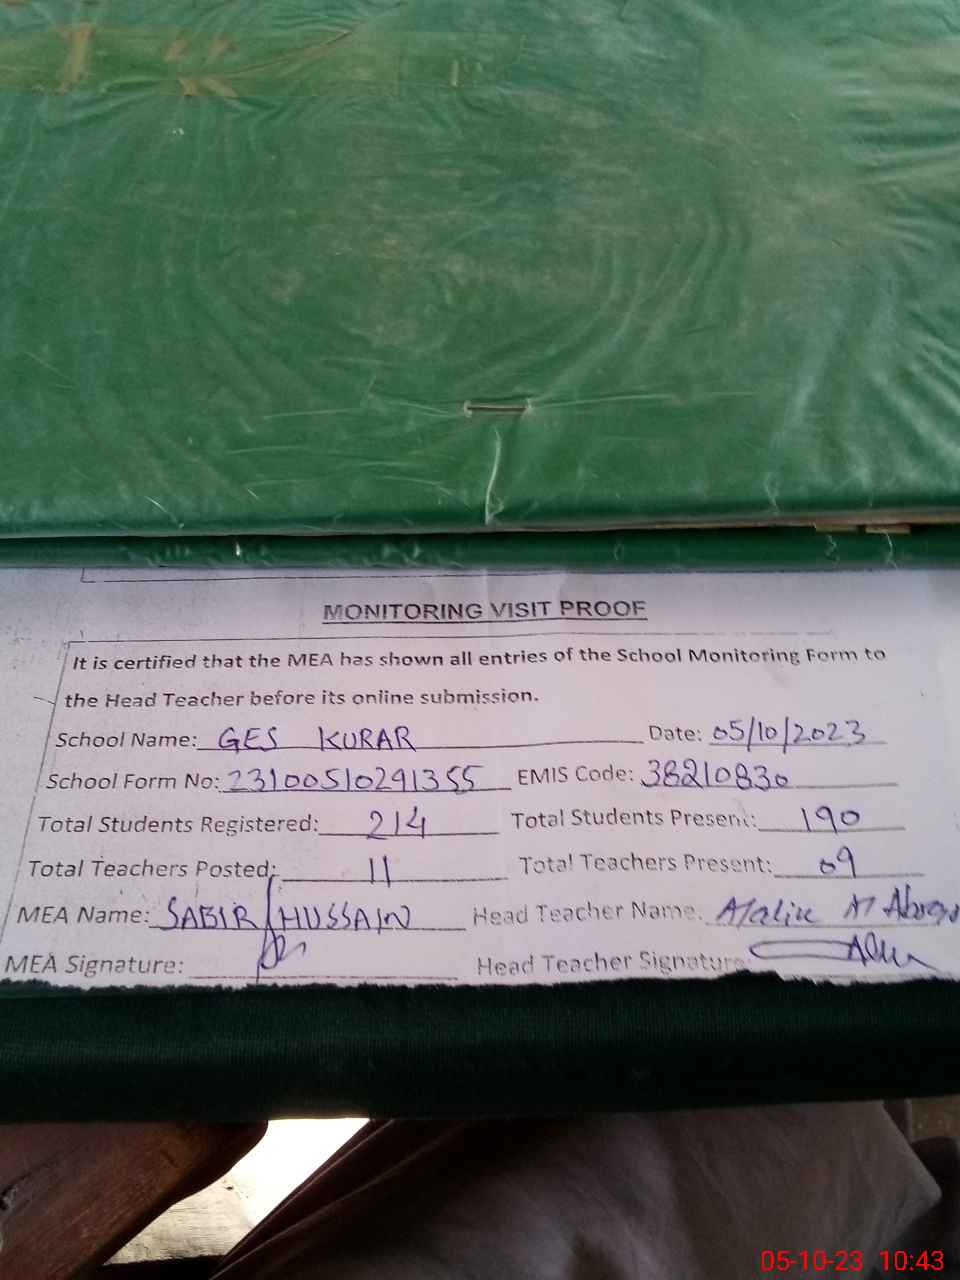 MONITORING VISIT PROOF
It is certified that the MEA has shown all entries of the School Monitoring Form to
the Head Teacher before its online submission.
School Name: GES KURAR Date: 05/10/2023
School Form No: 23100510291355 EMIS Code: 38210830
Total Students Registered: 214 Total Students Present: 190
Total Teachers Posted: 11 Total Teachers Present: 09
MEA Name: SABIR HUSSAIN Head Teacher Name:
MEA Signature: Head Teacher Signature
05-10-23 10:43